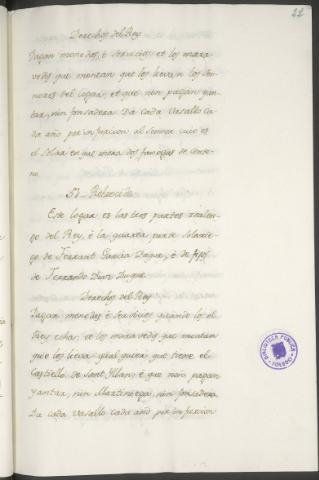 22
Derechos del Rey
Pagan monedas, è servicios, et los mara-
vedis que montan que los lievan los Sen-
nores del logar, et que non pagan yan-
tar, nin fonsadera. Da cada Vasallo ca-
da año por infurcion al Sennor cuio es
el Solar en que mora dos fanegas de cente-
no.
Este logar es las tres partes realen-
go del Rey, è la quarta parte Solarie-
go de Ferrant Garcia Duque, è de fijos
de Ferrando Diaz Duque.
Derechos del Rey
Pagan monedas è servicios quando los el
Rey echa, et los maravedis que montan
que los lieva qualquiera que tiene el
Castiello de Sant Yllan, è que non pagan
yantar, nin Martiniega, nin fonsadera.
Da cada Vasallo cada año por infurcion
BIBLIOTECA PUBLICA
TOLEDO